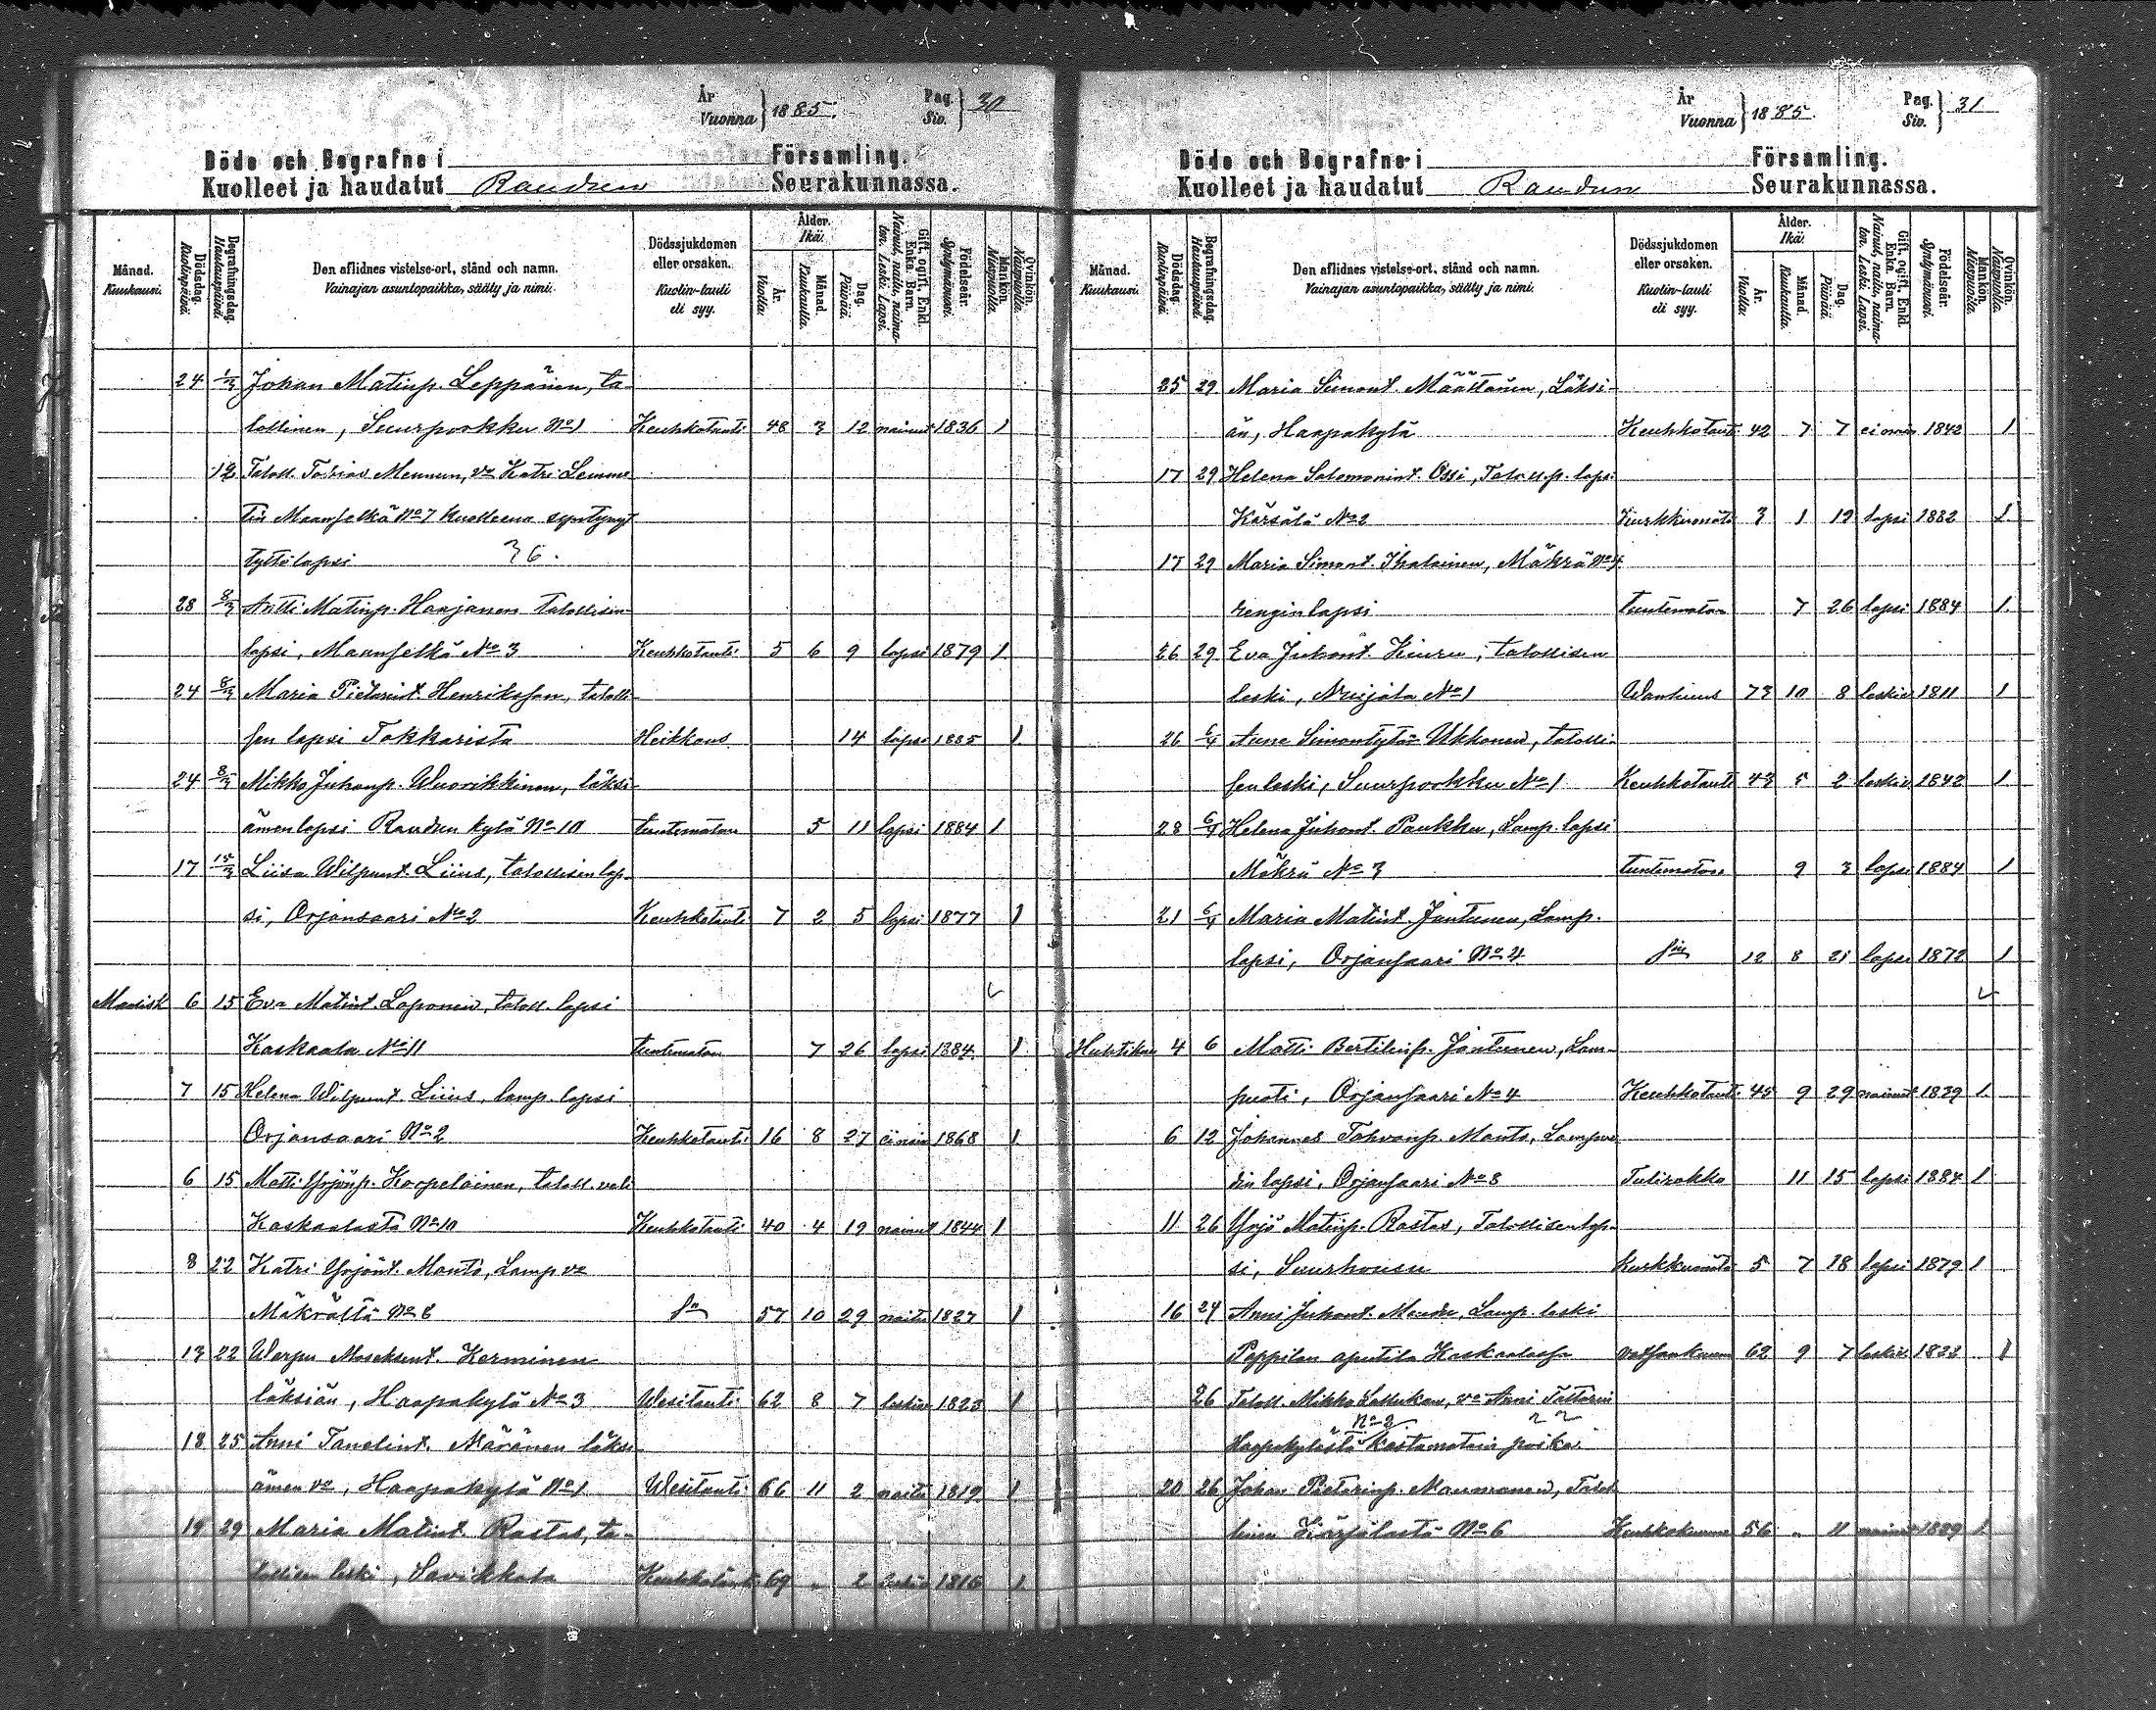 År
Vuonna } 1885.
Pag.
Siv. } 30
Döde och Begrafne i Församling.
Kuolleet ja haudatut Raudun Seurakunnassa.
Månad. Kuukausi.
Dödsdag. Kuolinpäivä.
Begrafningsdag. Hautauspäivä.
Den aflidnes vistelse-ort, stånd och namn.
Vainajan asuntopaikka, sääty ja nimi.
Dödssjukdomen eller orsaken.
Kuolin-tauti eli syy.
Ålder. Ikä.
År. Vuotta.
Månad. Kuukautta.
Dag. Päivää.
Gift, ogift, Enkl. Enka. Barn.
Nainut, naitu, naimaton. Leski. Lapsi.
Födelseår. Syntymävuosi.
Mankön. Miespuolta.
Qvinkön. Naispuolta.
24 1/3 Johan Matinp. Leppänen, ta-
lollinen, Suurporkku No 1 Keuhkotauti 48 3 12 nainut 1836 1
12 Taloll. Tobias Mennun, vo Katri Lemme
tin Maanselkä No 7 kuolleena syntynyt
tyttölapsi 36.
28 8/3 Antti Matinp. Haajanen talollisen
lapsi, Maanselkä No 3 Keuhkotauti 5 6 9 lapsi 1879 1
24 8/3 Maria Pietarint. Henriksson, talolli-
sen lapsi Tokkarista Heikkous 14 lapsi 1885 1
24 8/3 Mikko Juhanp. Wuorikkinen, läksi-
ämenlapsi Raudun kylä No 10 tuntematon 5 11 lapsi 1884 1
17 15/3 Liisa Wilpunt. Liius, talollisen lap-
si, Orjansaari No 2 Keuhkotauti 7 2 5 lapsi 1877 1
Maalisk 6 15 Eva Matint. Loponen, taloll. lapsi
Kaskaala No 11 tuntematon 7 26 lapsi 1884 1
7 15 Helena Wilpunt. Liius, lamp. lapsi
Orjansaari No 2 Keuhkotauti 16 8 27 ei nain 1868 1
6 15 Matti Yrjönp. Korpelainen, taloll. veli
Kaskaalasta No 10 Keuhkotauti 40 4 19 nainut 1844 1
8 22 Katri Yrjönt. Manto, Lamp vo
Mäkrältä No 8 sn 57 10 29 naitu 1827 1
13 22 Werpu Moseksent. Kerminen
läksiän, Haapakylä No 3 Wesitauti 62 8 7 leskiv 1823 1
18 25 Anni Tanelint. Märänen läksi
ämen vo, Haapakylä No 1 Wesitauti 66 11 2 naitu 1819 1
19 29 Maria Matint. Rastas, ta-
lollisen leski, Savikkala Keuhkotauti 69 " 2 1816 1
År
Vuonna } 1885.
Pag.
Siv. } 31
Döde och Begrafne i Församling.
Kuolleet ja haudatut Raudun Seurakunnassa.
Månad. Kuukausi.
Dödsdag. Kuolinpäivä.
Begrafningsdag. Hautauspäivä.
Den aflidnes vistelse-ort, stånd och namn.
Vainajan asuntopaikka, sääty ja nimi.
Dödssjukdomen eller orsaken.
Kuolin-tauti eli syy.
Ålder. Ikä.
År. Vuotta.
Månad. Kuukautta.
Dag. Päivää.
Gift, ogift, Enkl. Enka. Barn.
Nainut, naitu, naimaton. Leski. Lapsi.
Födelseår. Syntymävuosi.
Mankön. Miespuolta.
Qvinkön. Naispuolta.
25 29 Maria Simont. Määttänen, Läksi-
än, Haapakylä Keuhkotauti 42 7 7 ei nain 1842 1
17 29 Helena Salomonint. Ossi, Talo u.p. lapsi
Kärsälä No 2 Kurkkumätä 3 1 19 lapsi 1882 1
17 29 Maria Simont. Ihalainen, Mäkrä No 4
renginlapsi tuntematon 7 26 lapsi 1884 1
26 29 Eva Juhont. Kiuru, talollisen
leski, Nuijala No 1 Wanhuus 73 10 8 leskiv 1811 1
26 6/4 Anne Simontytär Ukkonen, talolli-
sen leski, Suurporkku No 1 Keuhkotauti 43 5 2 leskiv 1842 1
28 6/4 Helena Juhont. Paukku, Lamp. lapsi
Mäkrä No 3 tuntematon 9 3 lapsi 1884 1
21 6/4 Maria Matint. Jantunen, Lamp.
lapsi, Orjansaari No 4 sn 12 8 21 lapsi 1872 1
Huhtikuu 4 6 Matti Bertilinp. Jantunen, Lam-
puoti, Orjansaari No 4 Keuhkotauti 45 9 29 nainut 1839 1
6 12 Johannes Tahvonp. Manto, Lampuo
din lapsi, Orjansaari No 8 Tulirokko 11 15 lapsi 1884 1
11 26 Yrjö Matinp. Rastas, Talollisen lap-
si, Suurhousu Kurkkumätä 5 7 18 lapsi 1879 1
16 24 Anni Juhont. Lamp. leski
Pappilan aputila Kaskaalassa 62 9 7 leskiv 1822 1
26 Taloll. Mikko Lallukan, vo Anni Tattarin
No 2
Haapakylästä kastamatoin poika
20 26 Johan Pietarinp. Maunonen, Talol
linen Kärsälästä No 6 Keuhkokuume 56 " 11 nainut 1829 1